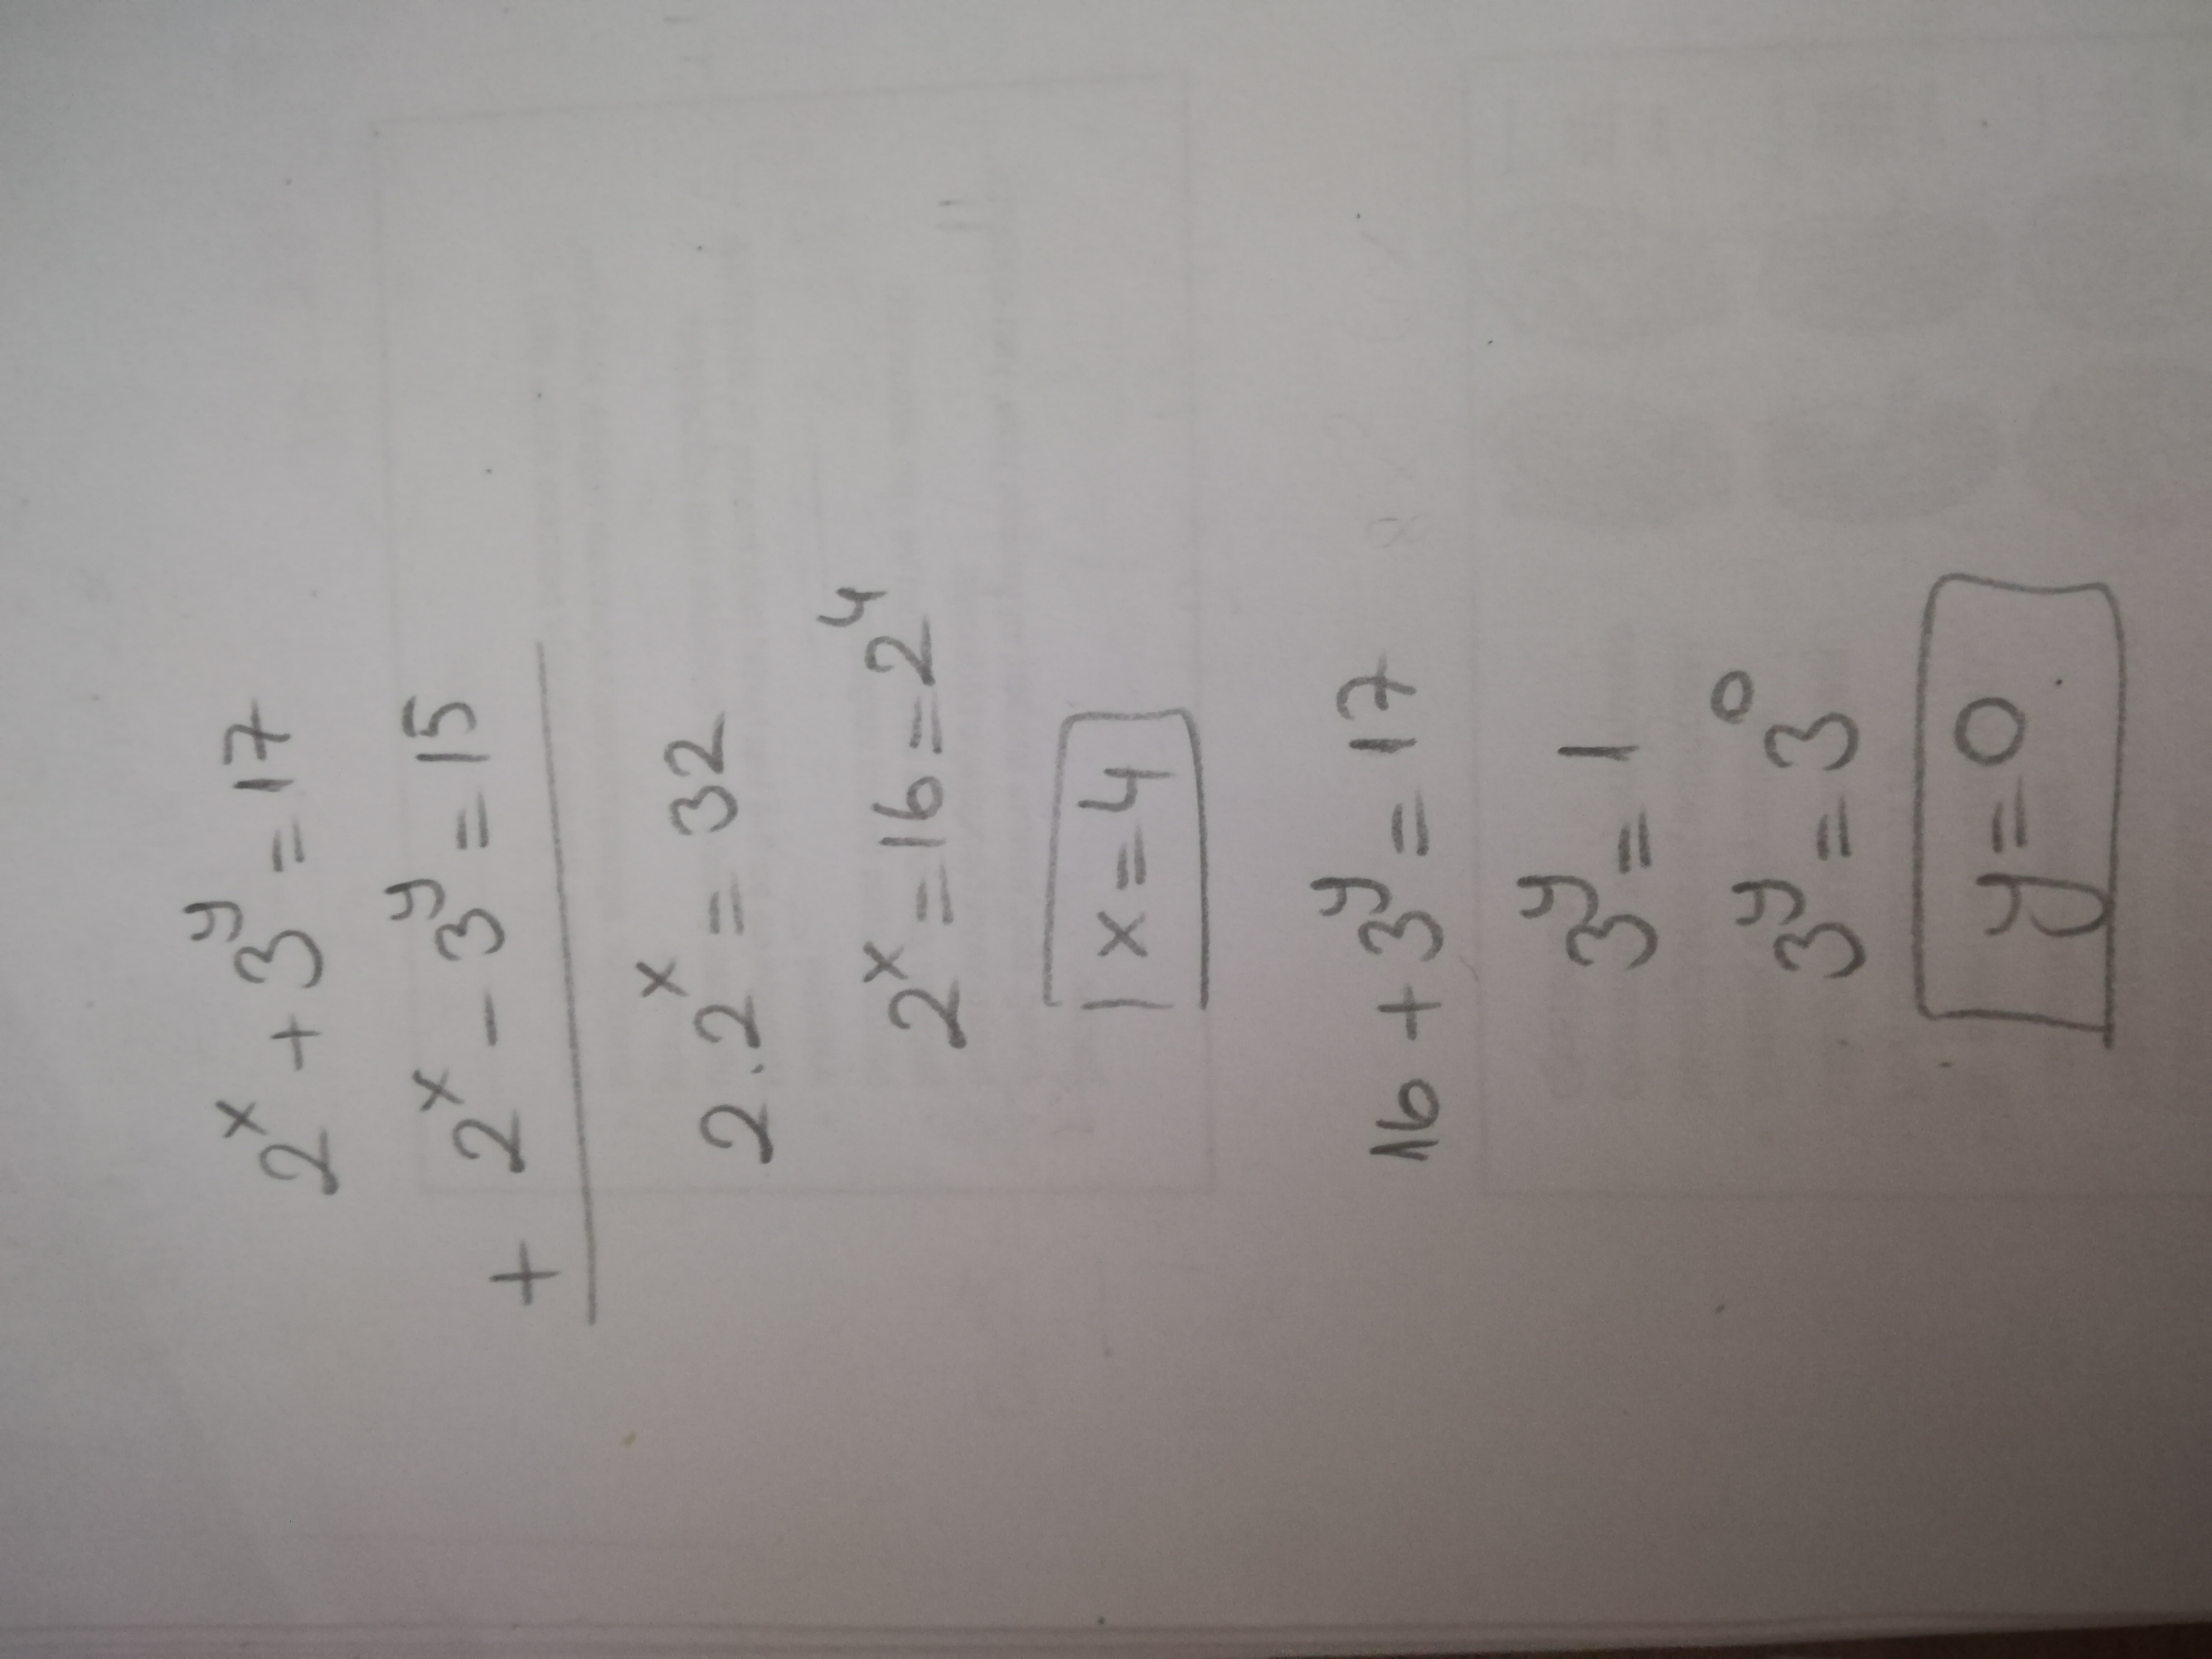 2ˣ + 3ʸ = 17
+ 2ˣ - 3ʸ = 15
2.2ˣ = 32
2ˣ = 16 = 2⁴
x = 4
16 + 3ʸ = 17
3ʸ = 1
3ʸ = 3⁰
y = 0